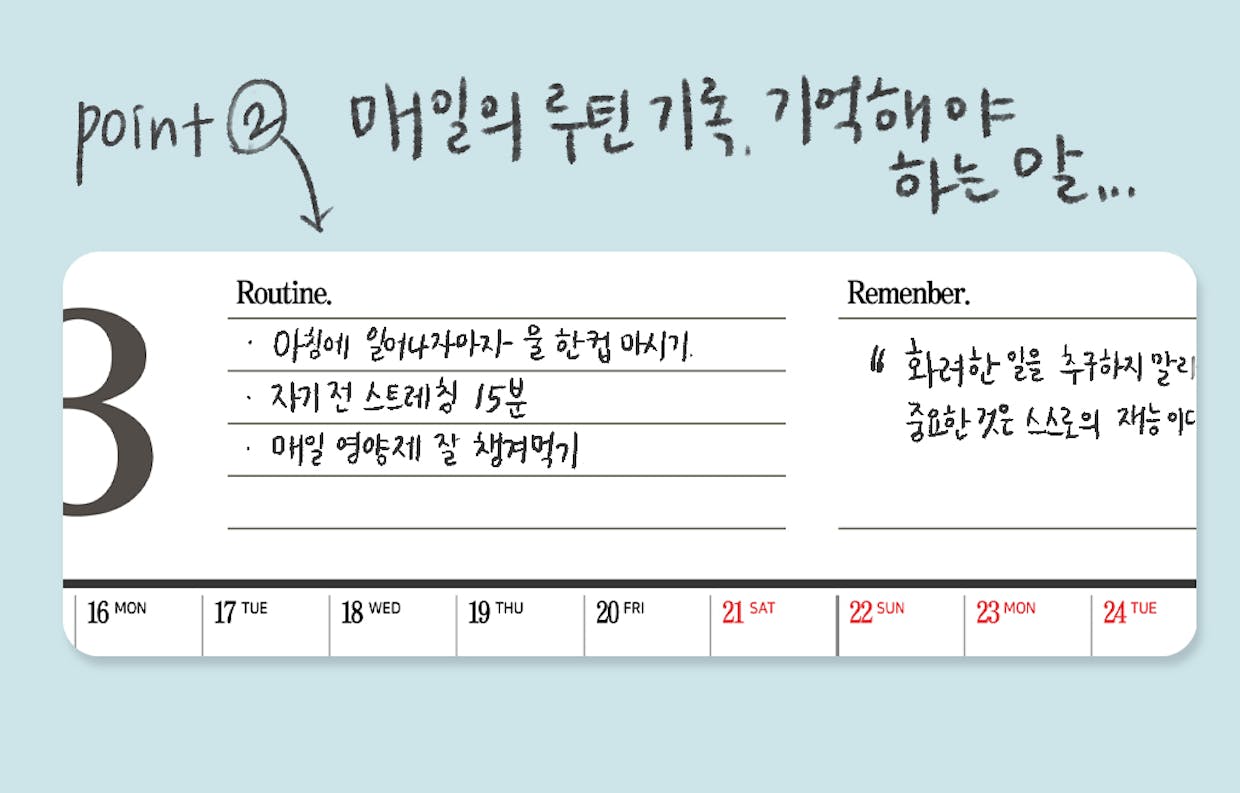 point ② 매일의 루틴 기록. 기억해야
하는 말...
Routine.
· 아침에 일어나자마자- 물 한컵 마시기.
· 자기 전 스트레칭 15분
· 매일 영양제 잘 챙겨먹기
Remenber.
“ 화려한 일을 추구하지 말라
중요한 것은 스스로의 재능이
3
16 MON 17 TUE 18 WED 19 THU 20 FRI 21 SAT 22 SUN 23 MON 24 TUE